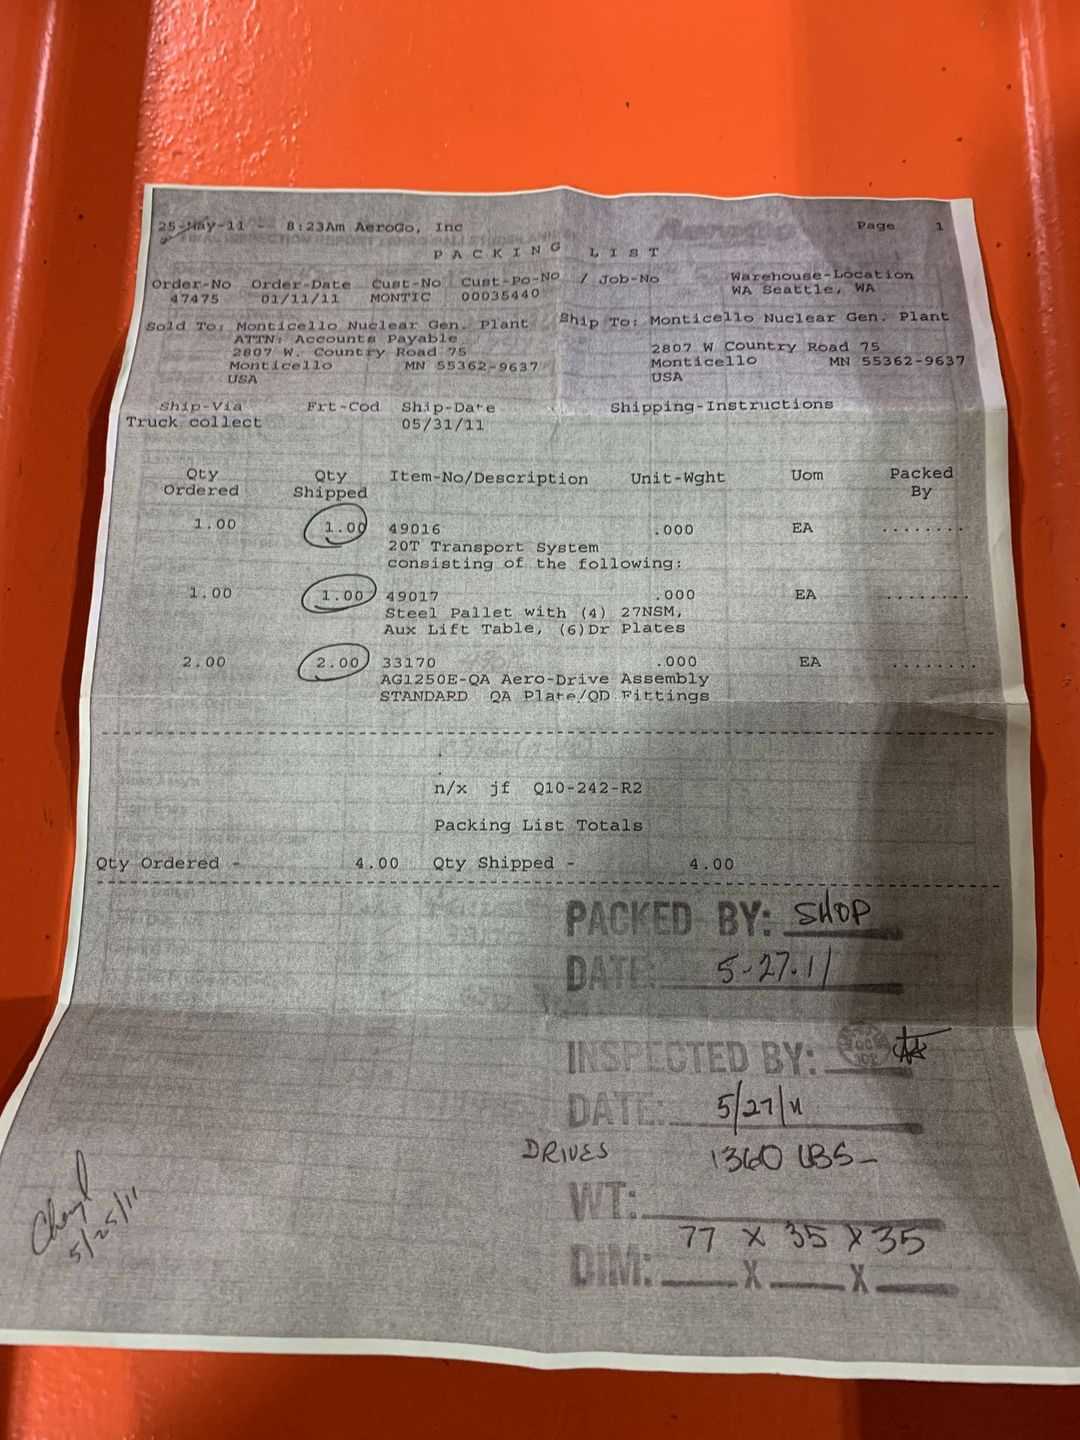 25-May-11 - 8:23Am AeroGo, Inc Page 1
PACKING LIST
Order-No Order-Date Cust-No Cust-Po-No / Job-No Warehouse-Location
47475 01/11/11 MONTIC 00035440 WA Seattle, WA
Sold To: Monticello Nuclear Gen. Plant Ship To: Monticello Nuclear Gen. Plant
ATTN: Accounts Payable
2807 W. Country Road 75 2807 W Country Road 75
Monticello MN 55362-9637 Monticello MN 55362-9637
USA USA
Ship-Via Frt-Cod Ship-Date Shipping-Instructions
Truck collect 05/31/11
Qty Qty Item-No/Description Unit-Wght Uom Packed
Ordered Shipped By
1.00 1.00 49016 .000 EA ........
20T Transport System
consisting of the following:
1.00 1.00 49017 .000 EA ........
Steel Pallet with (4) 27NSM,
Aux Lift Table, (6)Dr Plates
2.00 2.00 33170 .000 EA ........
AG1250E-QA Aero-Drive Assembly
STANDARD QA Plate/QD Fittings
n/x jf Q10-242-R2
Packing List Totals
Qty Ordered - 4.00 Qty Shipped - 4.00
PACKED BY: SHOP
DATE: 5-27-11
INSPECTED BY:
DATE: 5/27/11
DRIVES 1360 LBS-
WT:
77 X 35 X 35
DIM: X X
Cheryl
5/25/11